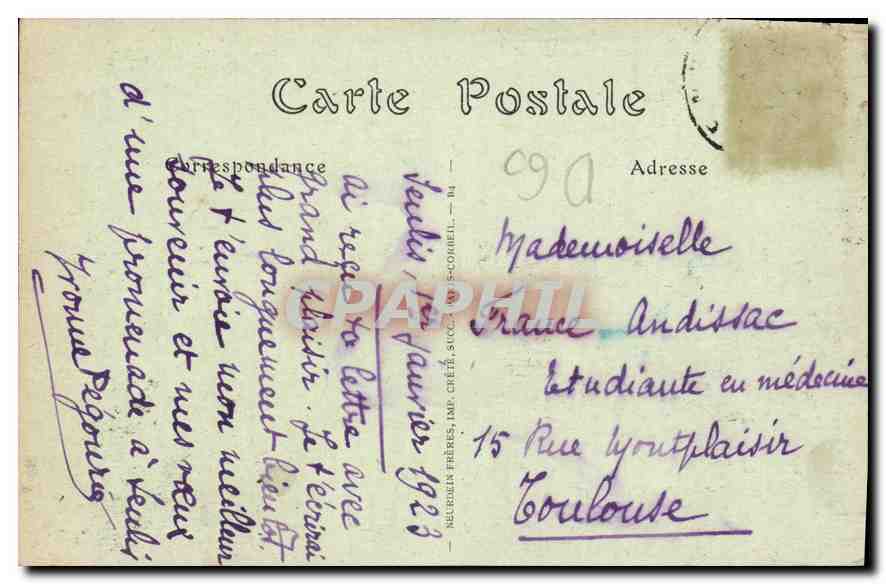 Carte Postale
Correspondance
Adresse
Senlis, 1er janvier 1923
ai reçu ta lettre avec
grand plaisir. Je t'écrirai
plus longuement bientôt.
Je t'envoie mon meilleur
souvenir et mes vœux
d'une promenade à Senlis
Yvonne
— NEURDEIN FRÈRES, IMP. CRÉTÉ, SUCC. PARIS-CORBEIL. — B4 —
Mademoiselle
France Andissac
Etudiante en médecine
15 Rue Montplaisir
Toulouse
CPAPHIL